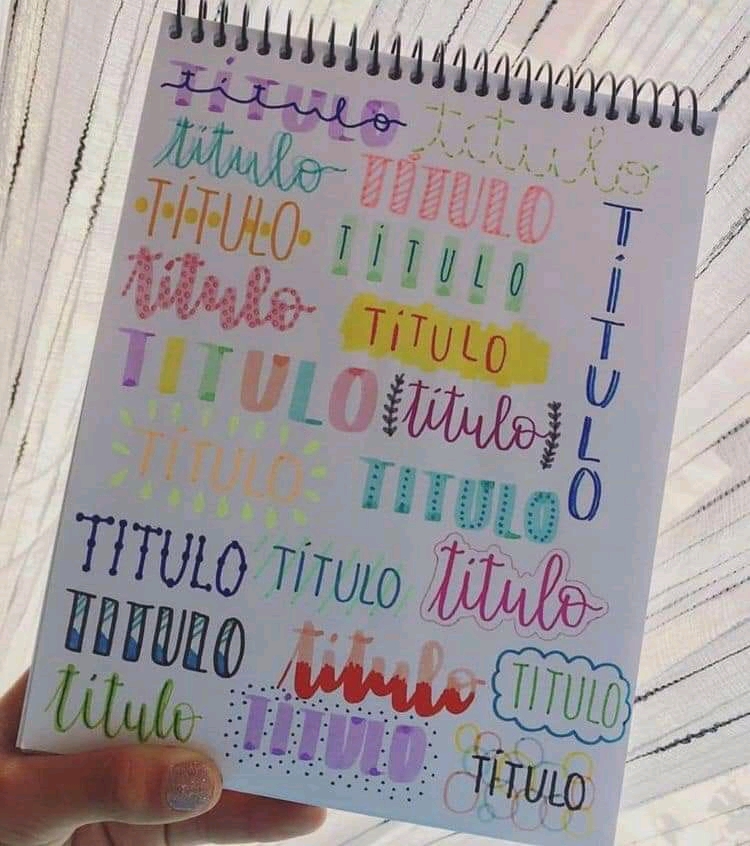 TÍTULO
título
título
título
TÍTULO
TÍTULO
TÍTULO
TÍTULO
título
TÍTULO
TITULO
título
TÍTULO
TITULO
TITULO
TÍTULO
título
TITULO
título
TITULO
título
TÍTULO
TÍTULO